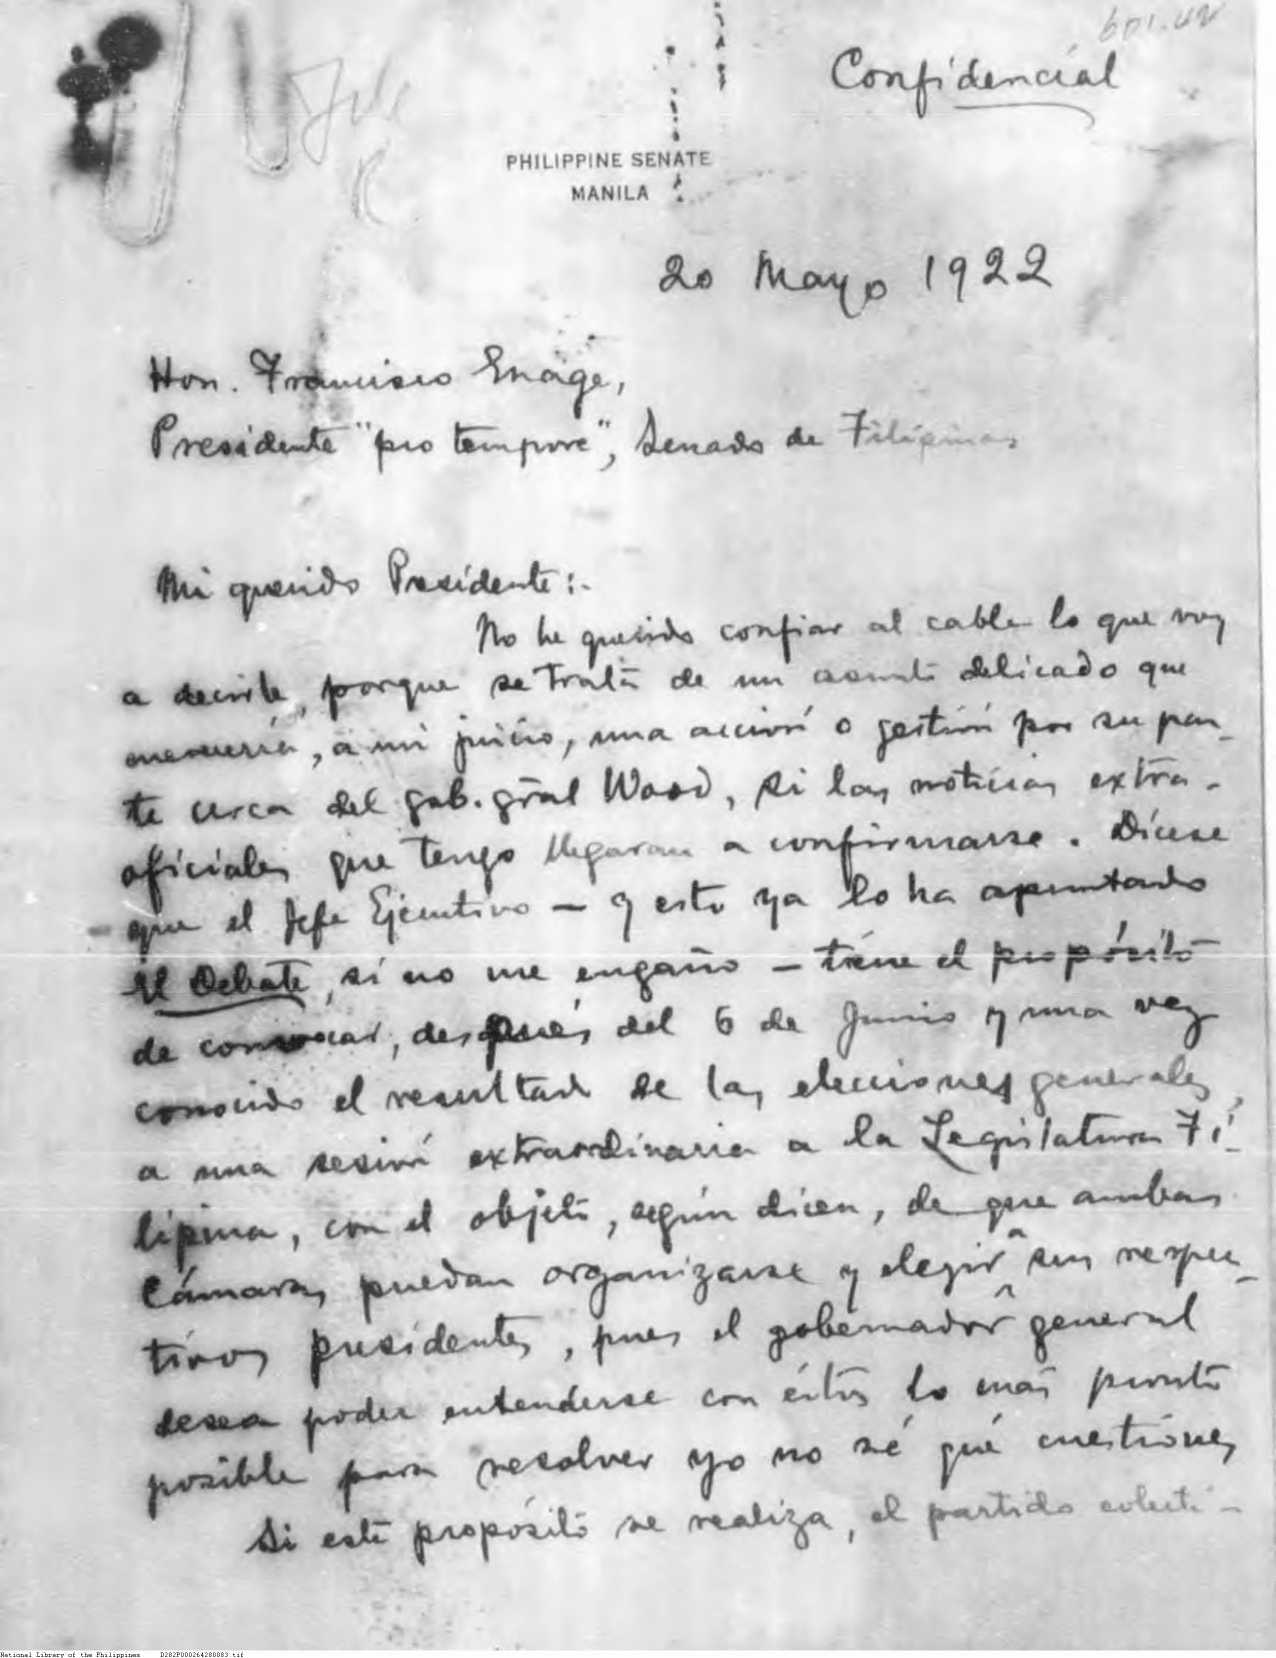 601.42
Confidencial
PHILIPPINE SENATE
MANILA
20 Mayo 1922
Hon. Francisco Enage,
Presidente "pro tempore", Senado de Filipinas
Mi querido Presidente:-
No he querido confiar al cable lo que voy
a decirle, porque se trata de un asunto delicado que
merecería, a mi juicio, una acción o gestión por su par-
te cerca del gob. gral Wood, si las noticias extra-
oficiales que tengo llegaran a confirmarse. Dícese
que el Jefe Ejecutivo — y esto ya lo ha apuntado
El Debate, si no me engaño — tiene el propósito
de convocar, después del 6 de Junio y una vez
conocido el resultado de las elecciones generales,
a una sesión extraordinaria a la Legislatura Fi-
lipina, con el objeto, según dicen, de que ambas
Cámaras puedan organizarse y elegir a sus respec-
tivos presidentes, pues el gobernador general
desea poder entenderse con éstos lo más pronto
posible para resolver yo no sé qué cuestiones
Si este propósito se realiza, el partido colecti-
National Library of the Philippines D282P000264280083.tif